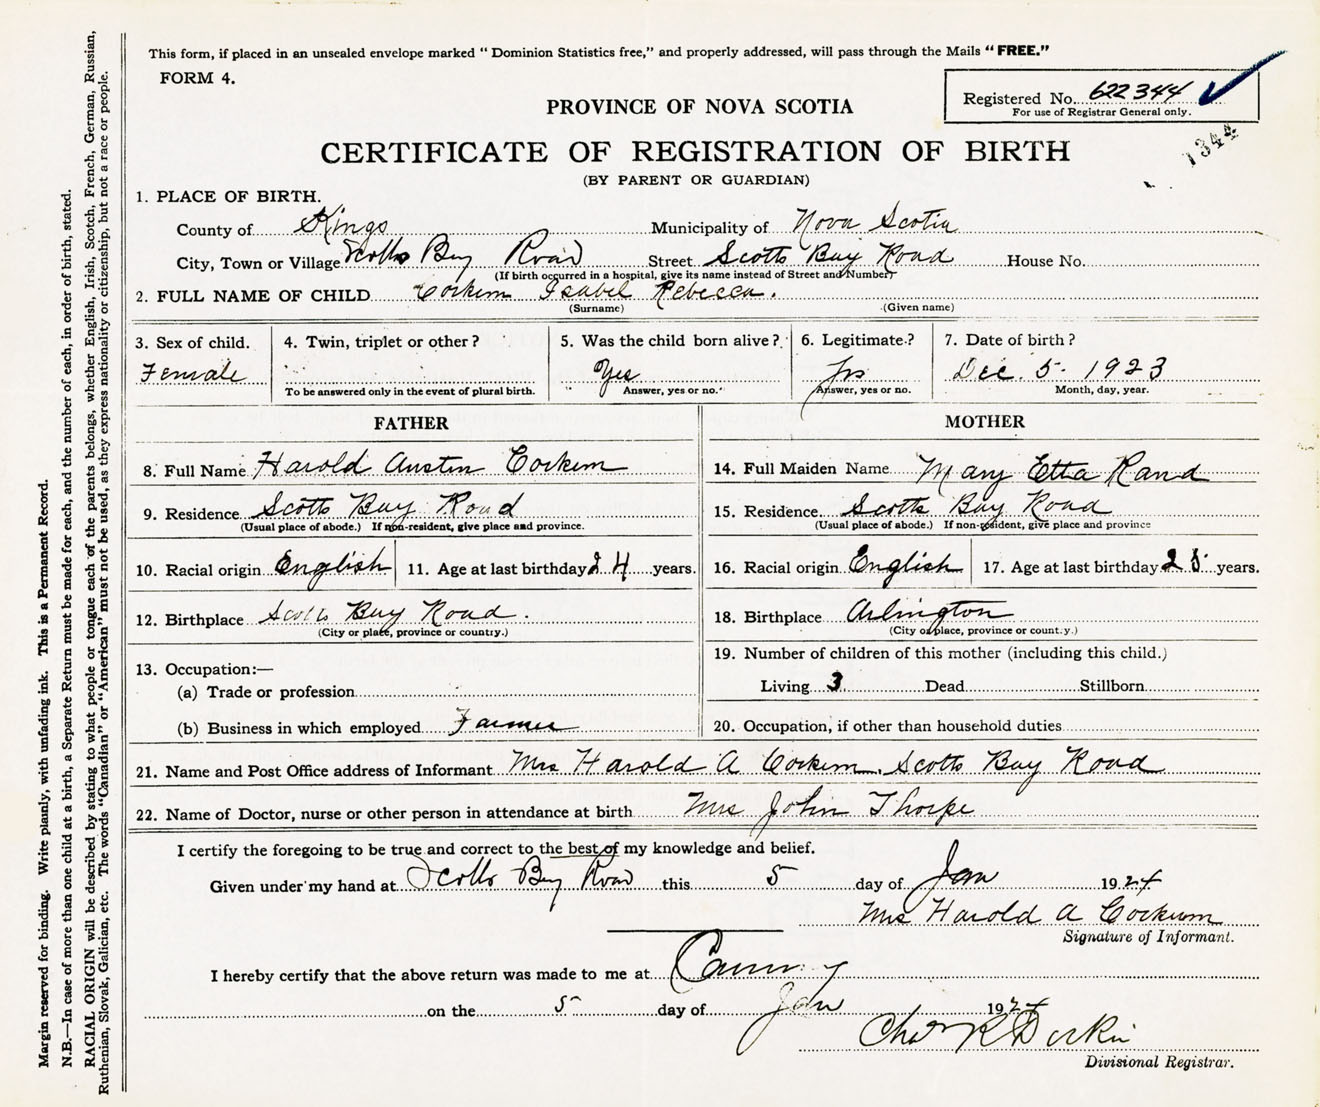 This form, if placed in an unsealed envelope marked "Dominion Statistics free," and properly addressed, will pass through the Mails "FREE."
FORM 4.
Registered No. 622344
For use of Registrar General only.
1344
PROVINCE OF NOVA SCOTIA
CERTIFICATE OF REGISTRATION OF BIRTH
(BY PARENT OR GUARDIAN)
1. PLACE OF BIRTH.
County of Kings Municipality of Nova Scotia
City, Town or Village Scotts Bay Road Street Scotts Bay Road House No.
(If birth occurred in a hospital, give its name instead of Street and Number)
2. FULL NAME OF CHILD Corkum Isabel Rebecca.
(Surname) (Given name)
3. Sex of child. 4. Twin, triplet or other? 5. Was the child born alive? 6. Legitimate? 7. Date of birth?
Female Yes Yes Dec. 5. 1923
To be answered only in the event of plural birth. Answer, yes or no. Answer, yes or no. Month, day, year.
FATHER
8. Full Name Harold Austin Corkum
9. Residence Scotts Bay Road
(Usual place of abode.) If non-resident, give place and province.
10. Racial origin English 11. Age at last birthday 24 years.
12. Birthplace Scotts Bay Road.
(City or place, province or country.)
13. Occupation:—
(a) Trade or profession
(b) Business in which employed Farmer
MOTHER
14. Full Maiden Name Mary Etta Rand
15. Residence. Scotts Bay Road
(Usual place of abode.) If non-resident, give place and province
16. Racial origin English 17. Age at last birthday years.
18. Birthplace Arlington
(City or place, province or country.)
19. Number of children of this mother (including this child.)
Living 3 Dead Stillborn
20. Occupation, if other than household duties
21. Name and Post Office address of Informant Mrs Harold A Corkum. Scotts Bay Road
22. Name of Doctor, nurse or other person in attendance at birth Mrs John Thorpe
I certify the foregoing to be true and correct to the best of my knowledge and belief.
Given under my hand at Scotts Bay Road this 5 day of Jan 1924
Mrs Harold A Corkum
Signature of Informant.
I hereby certify that the above return was made to me at Canning
on the 5 day of Jan 1924
Chas R
Divisional Registrar.
Margin reserved for binding. Write plainly, with unfading ink. This is a Permanent Record.
N.B.—In case of more than one child at a birth, a Separate Return must be made for each, and the number of each, in order of birth, stated.
RACIAL ORIGIN will be described by stating to what people or tongue each of the parents belongs, whether English, Irish, Scotch, French, German, Russian,
Ruthenian, Slovak, Galician, etc. The words "Canadian" or "American" must not be used, as they express nationality or citizenship, but not a race or people.